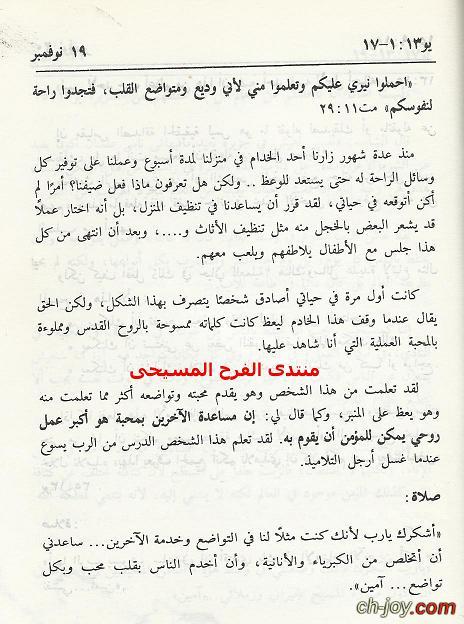 يو١٣:١-١٧
١٩ نوفمبر
«احملوا نيري عليكم وتعلموا مني لأني وديع ومتواضع القلب، فتجدوا راحة
لنفوسكم» مت١١:٢٩
منذ عدة شهور زارنا أحد الخدام في منزلنا لمدة أسبوع وعملنا على توفير كل
وسائل الراحة له حتى يستعد للوعظ .. ولكن هل تعرفون ماذا فعل ضيفنا؟ أمرًا لم
أكن أتوقعه في حياتي، لقد قرر أن يساعدنا في تنظيف المنزل، بل أنه اختار عملاً
قد يشعر البعض بالخجل منه مثل تنظيف الأثاث و....، وبعد أن انتهى من كل
هذا جلس مع الأطفال يلاطفهم ويلعب معهم.
كانت أول مرة في حياتي أصادق شخصًا يتصرف بهذا الشكل، ولكن الحق
يقال عندما وقف هذا الخادم ليعظ كانت كلماته ممسوحة بالروح القدس ومملوءة
بالمحبة العملية التي أنا شاهد عليها.
منتدى الفرح المسيحى
لقد تعلمت من هذا الشخص وهو يقدم محبته وتواضعه أكثر مما تعلمت منه
وهو يعظ على المنبر، وكما قال لي: إن مساعدة الآخرين بمحبة هو أكبر عمل
روحي يمكن للمؤمن أن يقوم به. لقد تعلم هذا الشخص الدرس من الرب يسوع
عندما غسل أرجل التلاميذ.
صلاة:
«أشكرك يارب لأنك كنت مثلًا لنا في التواضع وخدمة الآخرين... ساعدني
أن أتخلص من الكبرياء والأنانية، وأن أخدم الناس بقلب محب وبكل
تواضع... آمين».
ch-joy.com